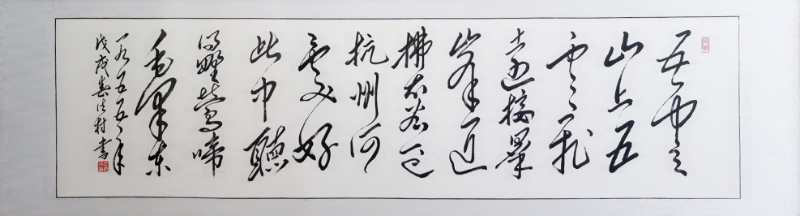 五雲
山上五
云飛
远接羣
峰近
拂堤若问
杭州何
處好
此中聽
得野莺啼
毛澤东
一九五五年
戊戌春 村書